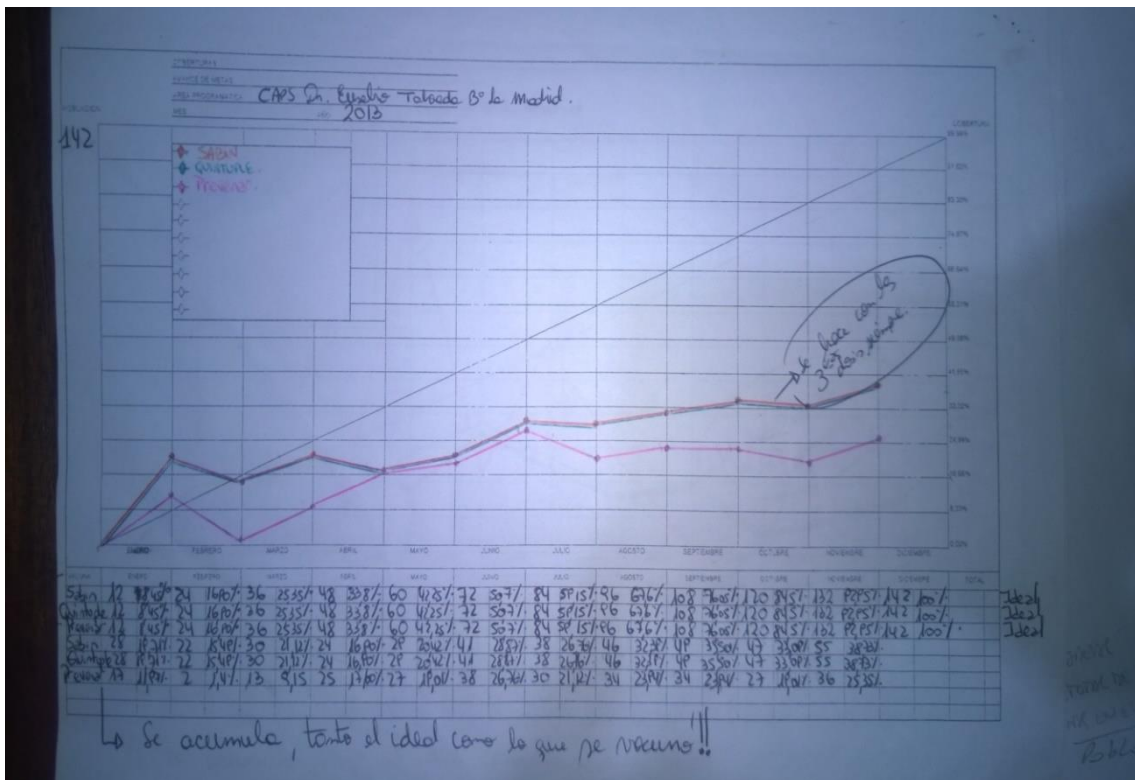 COBERTURAS
AVANCE DE METAS
AREA PROGRAMATICA CAPS Dr. Eusebio Taboada Bº La Madrid.
MES AÑO 2013
POBLACION
COBERTURA
142
SABIN
QUINTUPLE.
Prevenar.
99,96%
91,63%
83,30%
74,97%
66,64%
58,31%
49,98%
41,65%
33,32%
24,99%
16,66%
8,33%
0,00%
→ Se hace con las
3 dosis siempre.
ENERO FEBRERO MARZO ABRIL MAYO JUNIO JULIO AGOSTO SEPTIEMBRE OCTUBRE NOVIEMBRE DICIEMBRE
VACUNA ENERO FEBRERO MARZO ABRIL MAYO JUNIO JULIO AGOSTO SEPTIEMBRE OCTUBRE NOVIEMBRE DICIEMBRE TOTAL
Sabin 12 8,45% 24 16,90% 36 25,35% 48 33,8% 60 42,25% 72 50,7% 84 59,15% 96 67,6% 108 76,05% 120 84,5% 132 92,95% 142 100% Ideal
Quintuple 12 8,45% 24 16,90% 36 25,35% 48 33,8% 60 42,25% 72 50,7% 84 59,15% 96 67,6% 108 76,05% 120 84,5% 132 92,95% 142 100% Ideal
Prevenar 12 8,45% 24 16,90% 36 25,35% 48 33,8% 60 42,25% 72 50,7% 84 59,15% 96 67,6% 108 76,05% 120 84,5% 132 92,95% 142 100% Ideal
Sabin 28 19,71% 22 15,49% 30 21,12% 24 16,90% 29 20,42% 41 28,87% 38 26,76% 46 32,39% 49 34,50% 47 33,09% 55 38,73%
Quintuple 28 19,71% 22 15,49% 30 21,12% 24 16,90% 29 20,42% 41 28,87% 38 26,76% 46 32,39% 49 34,50% 47 33,09% 55 38,73%
Prevenar 17 11,97% 2 1,4% 13 9,15 25 17,60% 27 19,01% 38 26,76% 30 21,12% 34 23,94% 34 23,94% 27 19,01% 36 25,35%
↳ Se acumula, tanto el ideal como lo que se vacuno!!